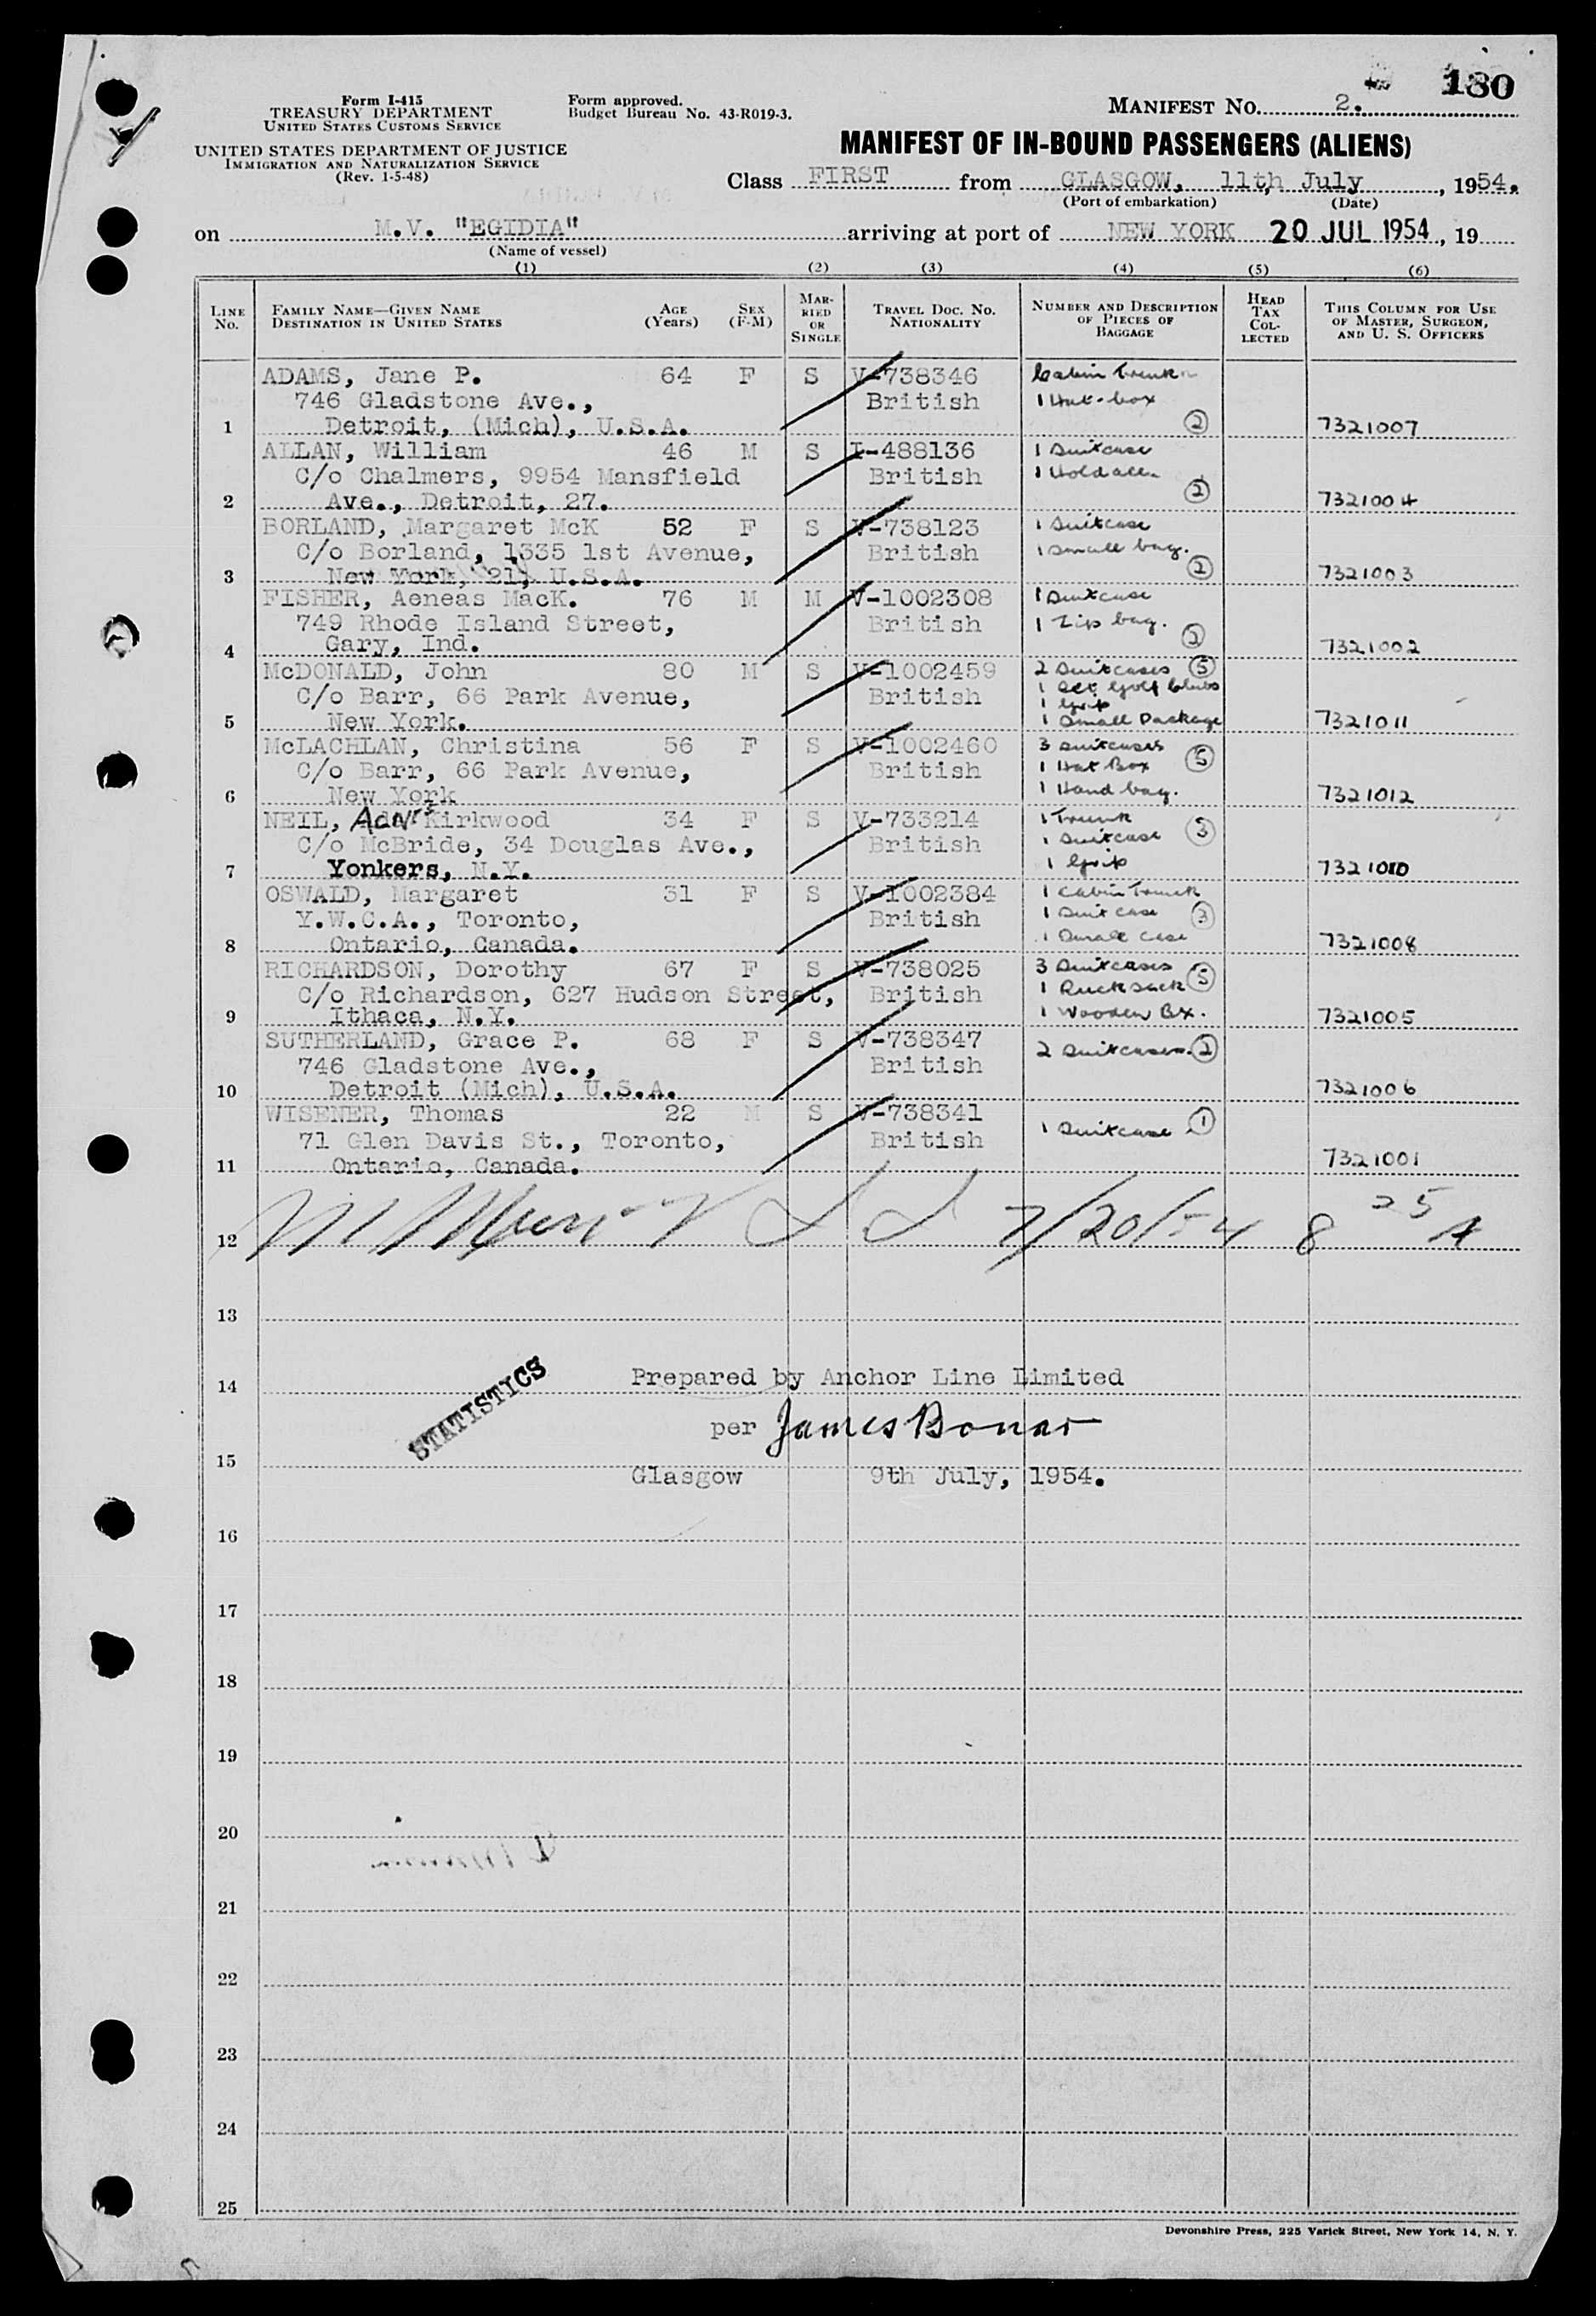 180
Form I-415
TREASURY DEPARTMENT
UNITED STATES CUSTOMS SERVICE
UNITED STATES DEPARTMENT OF JUSTICE
IMMIGRATION AND NATURALIZATION SERVICE
(Rev. 1-5-48)
Form approved.
Budget Bureau No. 43-R019-3.
MANIFEST NO. 2.
MANIFEST OF IN-BOUND PASSENGERS (ALIENS)
Class FIRST from GLASGOW, 11th July, 1954.
(Port of embarkation) (Date)
on M.V. "EGIDIA" arriving at port of NEW YORK 20 JUL 1954, 19
(Name of vessel)
(1) (2) (3) (4) (5) (6)
LINE No.
FAMILY NAME—GIVEN NAME
DESTINATION IN UNITED STATES
AGE (Years)
SEX (F-M)
MARRIED OR SINGLE
TRAVEL DOC. NO. NATIONALITY
NUMBER AND DESCRIPTION OF PIECES OF BAGGAGE
HEAD TAX COLLECTED
THIS COLUMN FOR USE OF MASTER, SURGEON, AND U. S. OFFICERS
ADAMS, Jane P. 64 F S V-738346 Cabin Trunk
746 Gladstone Ave., British 1 Hat-box
1 Detroit, (Mich), U.S.A. 2 7321007
ALLAN, William 46 M S I-488136 1 Suitcase
C/o Chalmers, 9954 Mansfield British 1 Holdall
2 Ave., Detroit, 27. 2 7321004
BORLAND, Margaret McK 52 F S V-738123 1 Suitcase
C/o Borland, 1335 1st Avenue, British 1 small bag.
3 New York, 21, U.S.A. 2 7321003
FISHER, Aeneas MacK. 76 M M V-1002308 1 Suitcase
749 Rhode Island Street, British 1 Zip bag.
4 Gary, Ind. 2 7321002
McDONALD, John 80 M S V-1002459 2 Suitcases 5
C/o Barr, 66 Park Avenue, British 1 Set Golf Clubs
1 Grip
5 New York. 1 Small Package 7321011
McLACHLAN, Christina 56 F S V-1002460 3 Suitcases
C/o Barr, 66 Park Avenue, British 1 Hat Box 5
6 New York 1 Hand bag. 7321012
NEIL, Kirkwood 34 F S V-733214 1 Trunk
C/o McBride, 34 Douglas Ave., British 1 Suitcase 3
7 Yonkers, N.Y. 1 Grip 7321010
OSWALD, Margaret 31 F S V-1002384 1 Cabin Trunk
Y.W.C.A., Toronto, British 1 Suit case 3
8 Ontario, Canada. 1 Small case 7321008
RICHARDSON, Dorothy 67 F S V-738025 3 Suitcases
C/o Richardson, 627 Hudson Street, British 1 Rucksack 5
9 Ithaca, N.Y. 1 Wooden Bx. 7321005
SUTHERLAND, Grace P. 68 F S V-738347
746 Gladstone Ave., British 2 Suitcases. 2
10 Detroit (Mich), U.S.A. 7321006
WISENER, Thomas 22 M S V-738341
71 Glen Davis St., Toronto, British 1 Suitcase 1
11 Ontario, Canada. 7321001
12 7/20/54 8 25 A
13
14 Prepared by Anchor Line Limited
STATISTICS
per James Bonar
15
Glasgow 9th July, 1954.
16
17
18
19
20
21
22
23
24
25
Devonshire Press, 225 Varick Street, New York 14, N. Y.